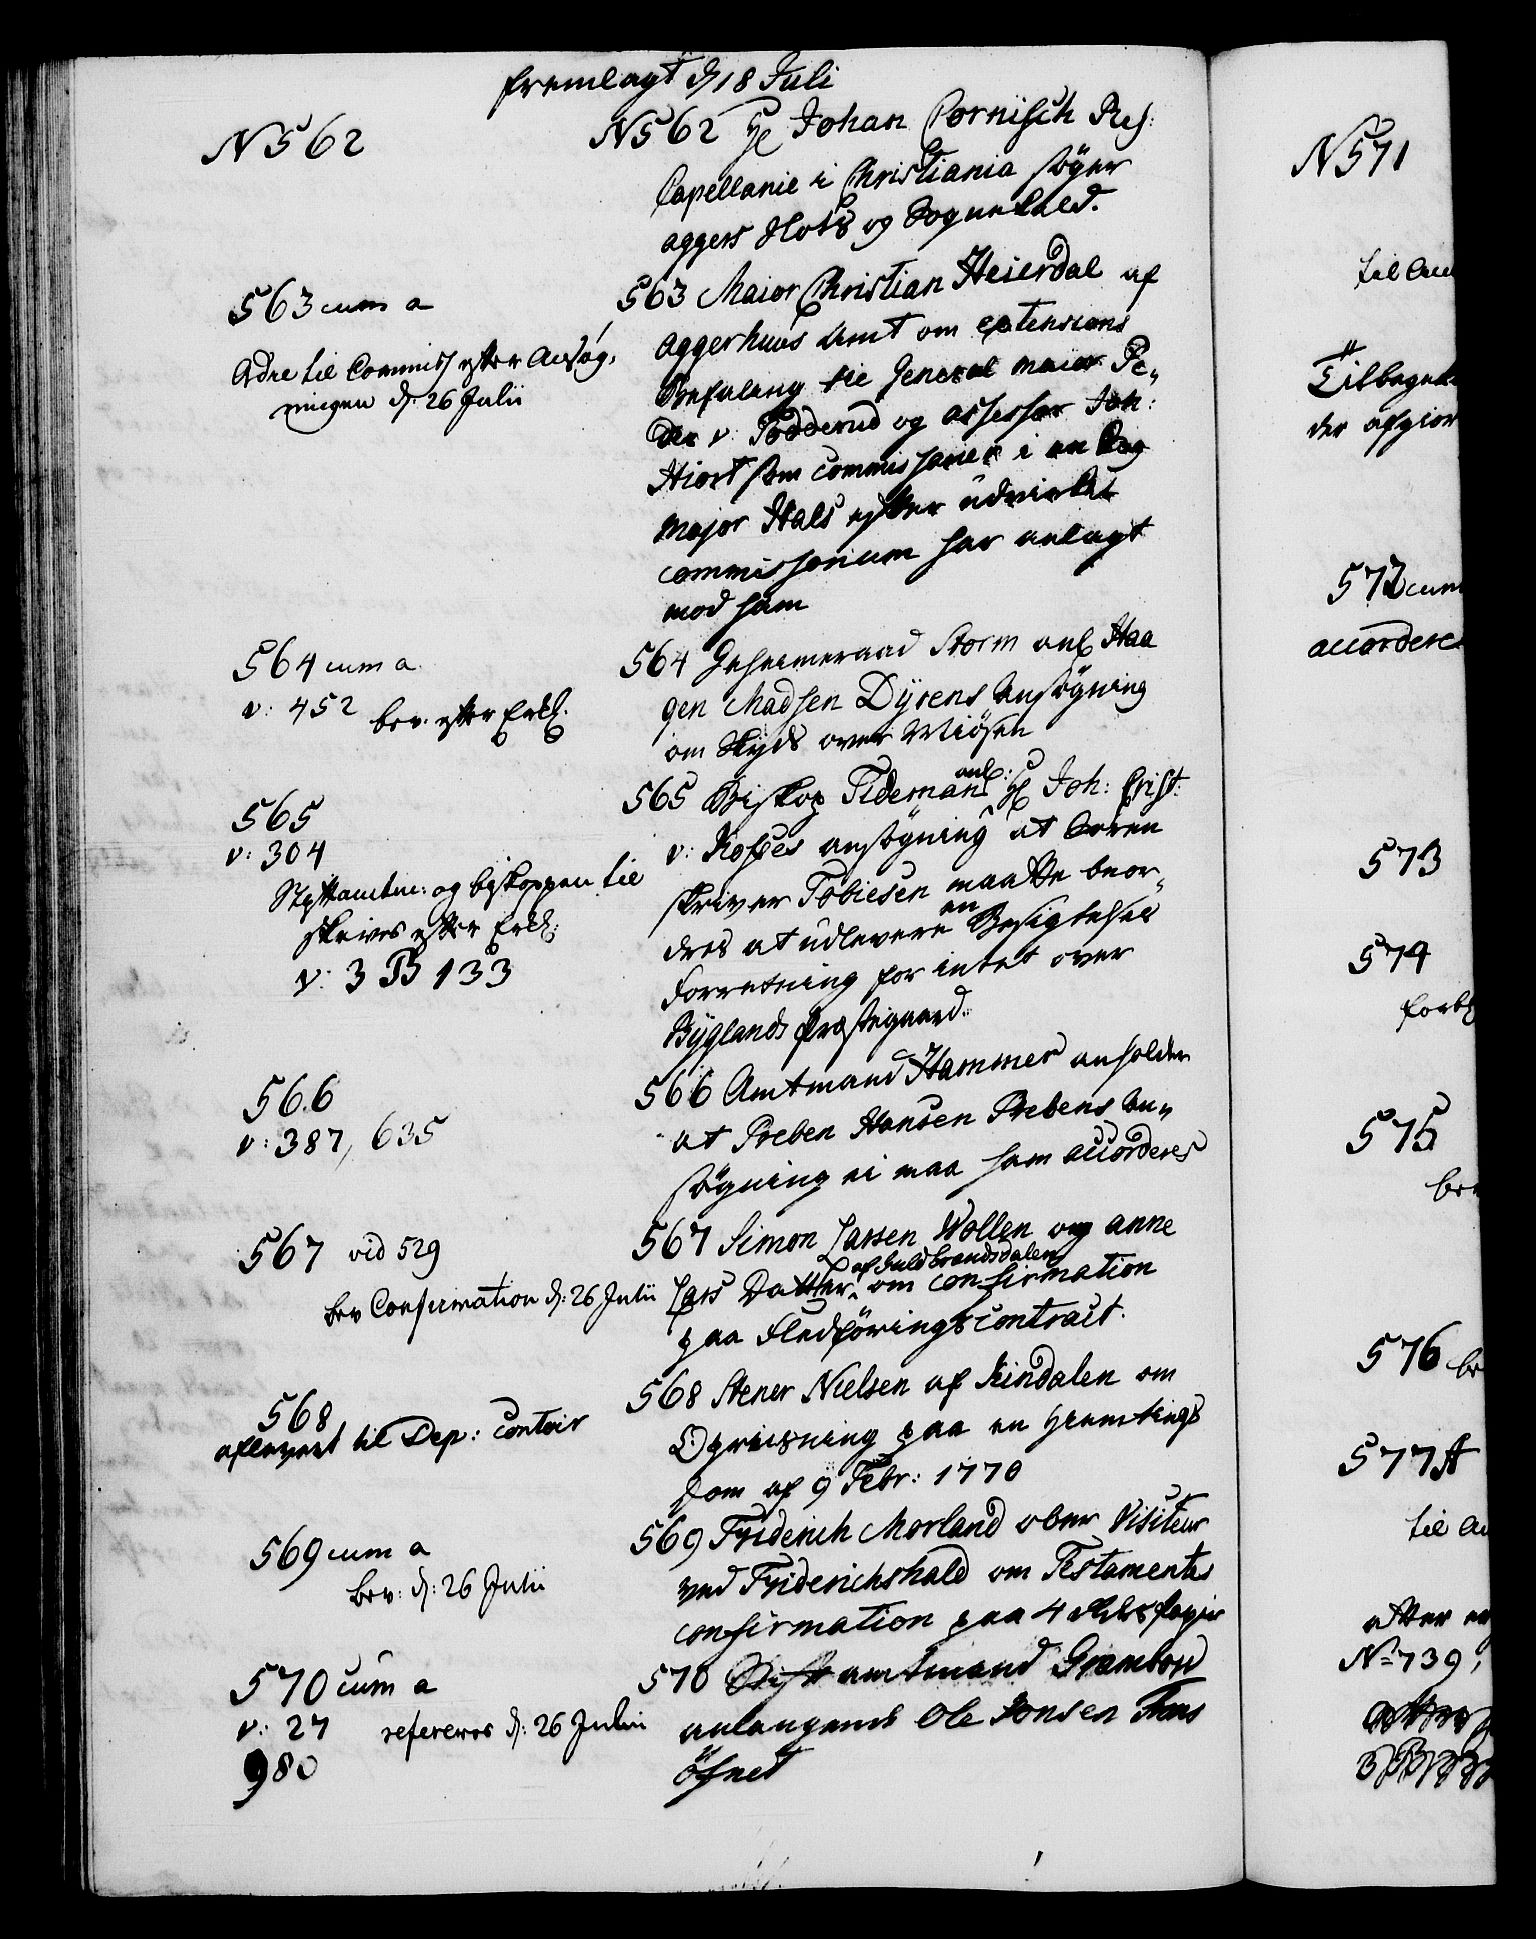 fremlagt d/ 18 Juli
N 562
N 562 Hr Johan Cornisch Res:
Capellanie i Christiania søger
Aggers Slots og Sognekald.
563 cum a
Ordre til Commiss efter Ansøg,
ningen d: 26 Julii
563 Maior Christian Heierdal af
Aggerhuus Amt om extensions
Befaling til General maior Pe,,
der v. Todderud og Assessor Joh:
Hiort som commissarier i en Sag
Major Hals efter udvirket
commissorium har anlagt
mod ham
564 cum a
v: 452 bev. efter Erkl.
564 Geheimeraad Storm anl Haa
gen Madsen Dyrens Ansøgning
om Skyds over Miøsen
565
v: 304
Stiftamtm: og biskoppen til
skrives efter Erkl:
v: 3 B 133
565 Biskop Tideman anl: Hr Joh: Crist:
v: Kofoes ansøgning at Soren
skriver Tobiesen maatte beor,,
dres at udlevere en Besigtelses
Forretning for intet over
Byglands præstegaard.
566
v: 387, 635
566 Amtmand Hammer anholder
at Preben Hansen Prebens an,,
søgning ei maa ham accorderes
567 vid 529
bev Confirmation d: 26 Julii
567 Simon Larsen Wollen og Anne
Lars Datter af Guldbrandsdalen om confirmation
paa Fledføringscontract.
568
afleveret til Dep: Contoir
568 Stener Nielsen af Rindalen om
Opreisning paa en Hiemtings
Dom af 9 Febr: 1770
569 cum a
bev: d: 26 Julii
569 Friderich Morland ober Visiteur
ved Friderichshald om Testamentes
confirmation paa 4 papir
570 cum a
v: 27 refereres d: 26 Julii
980
570 Stiftamtmand Grambow
anlangende Ole Jonsen Traas
øfnet
N 571
572 cum
accordere
573
574
575
576
577 A
til
No 739,